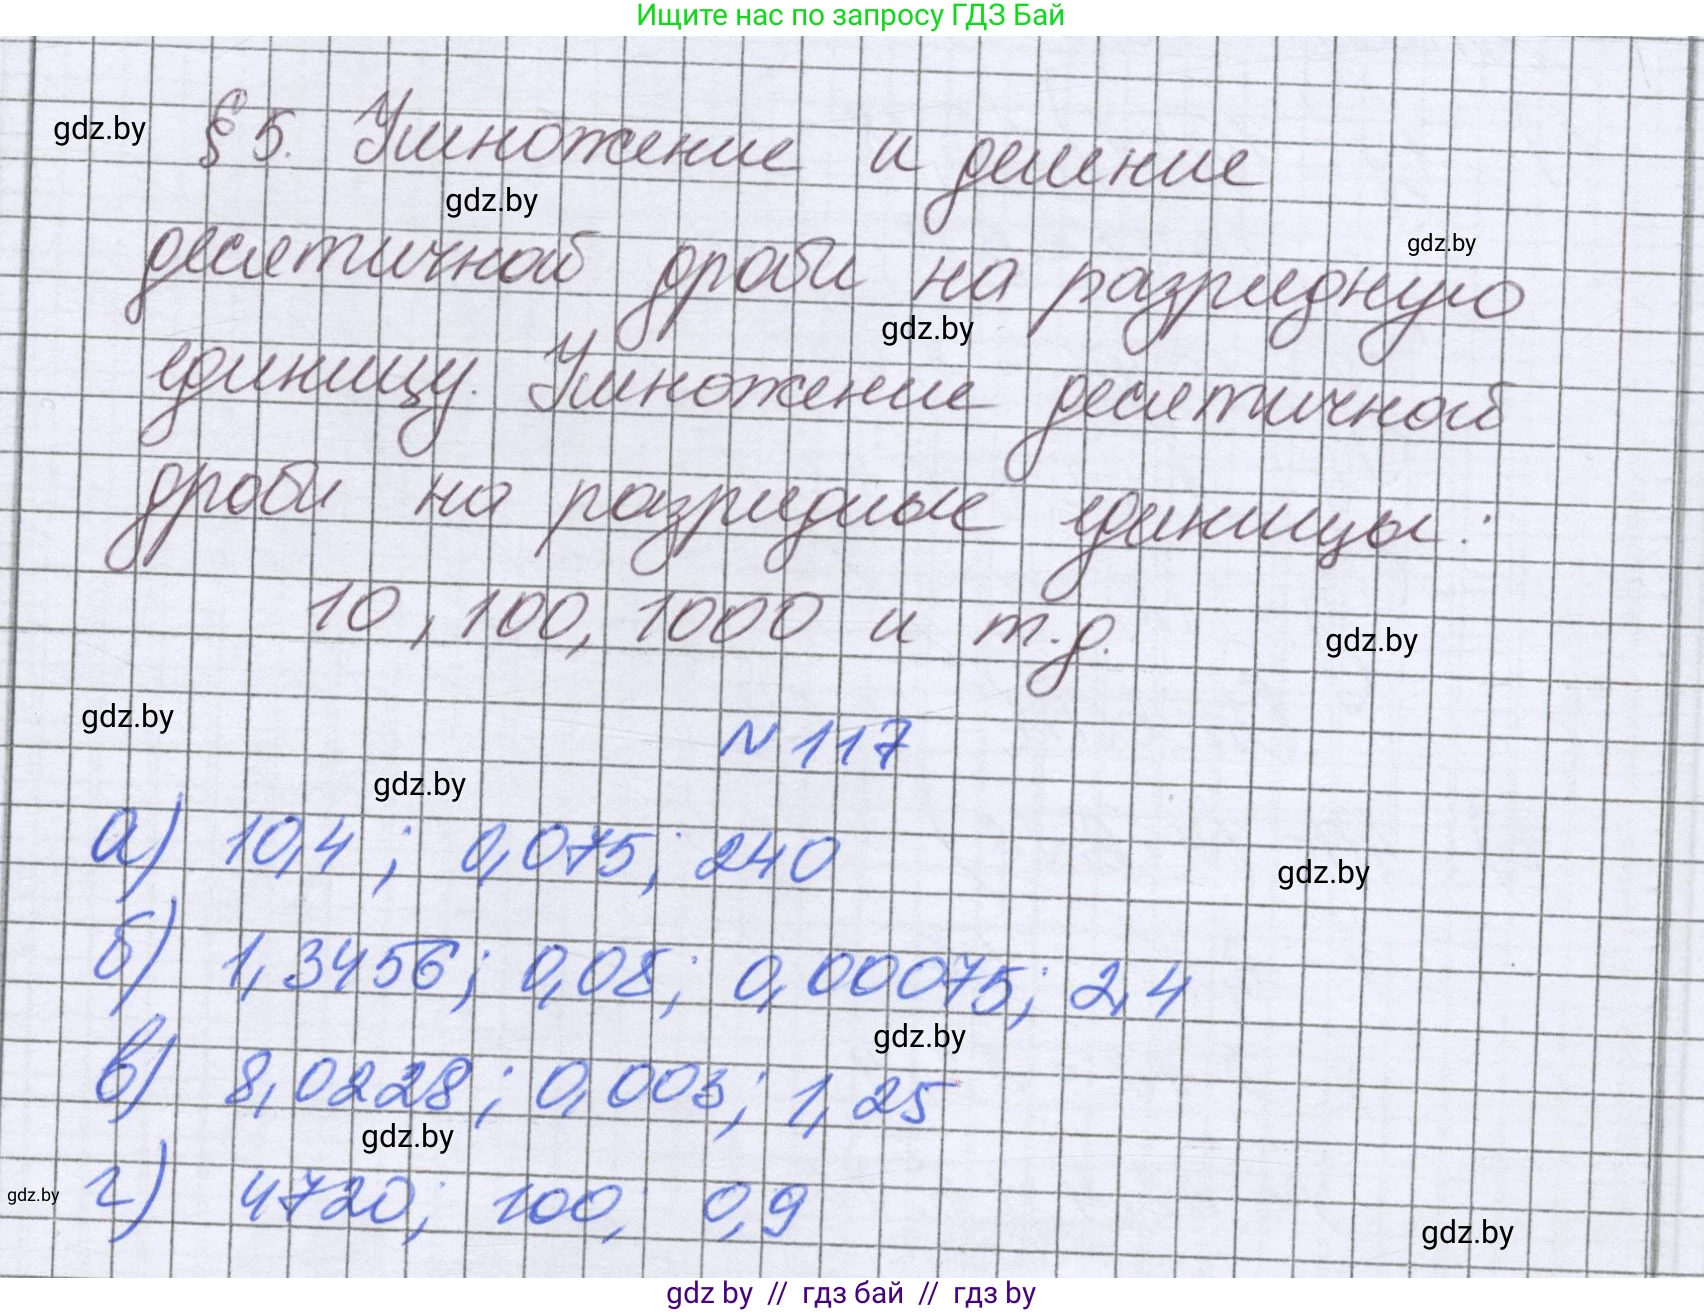 Ищите нас по запросу ГДЗ Бай
gdz.by
§ 5. Умножение и деление
gdz.by
десятичной дроби на разрядную
gdz.by
gdz.by
единицу. Умножение десятичной
дроби на разрядные единицы:
10, 100, 1000 и т.д.
gdz.by
gdz.by
N 117
gdz.by
а) 10,4; 0,075; 240
gdz.by
б) 1,3456; 0,08; 0,00075; 2,4
gdz.by
в) 8,0228; 0,003; 1,25
gdz.by
gdz.by
г) 4720; 100; 0,9
gdz.by
gdz by // гдз бай // гдз by